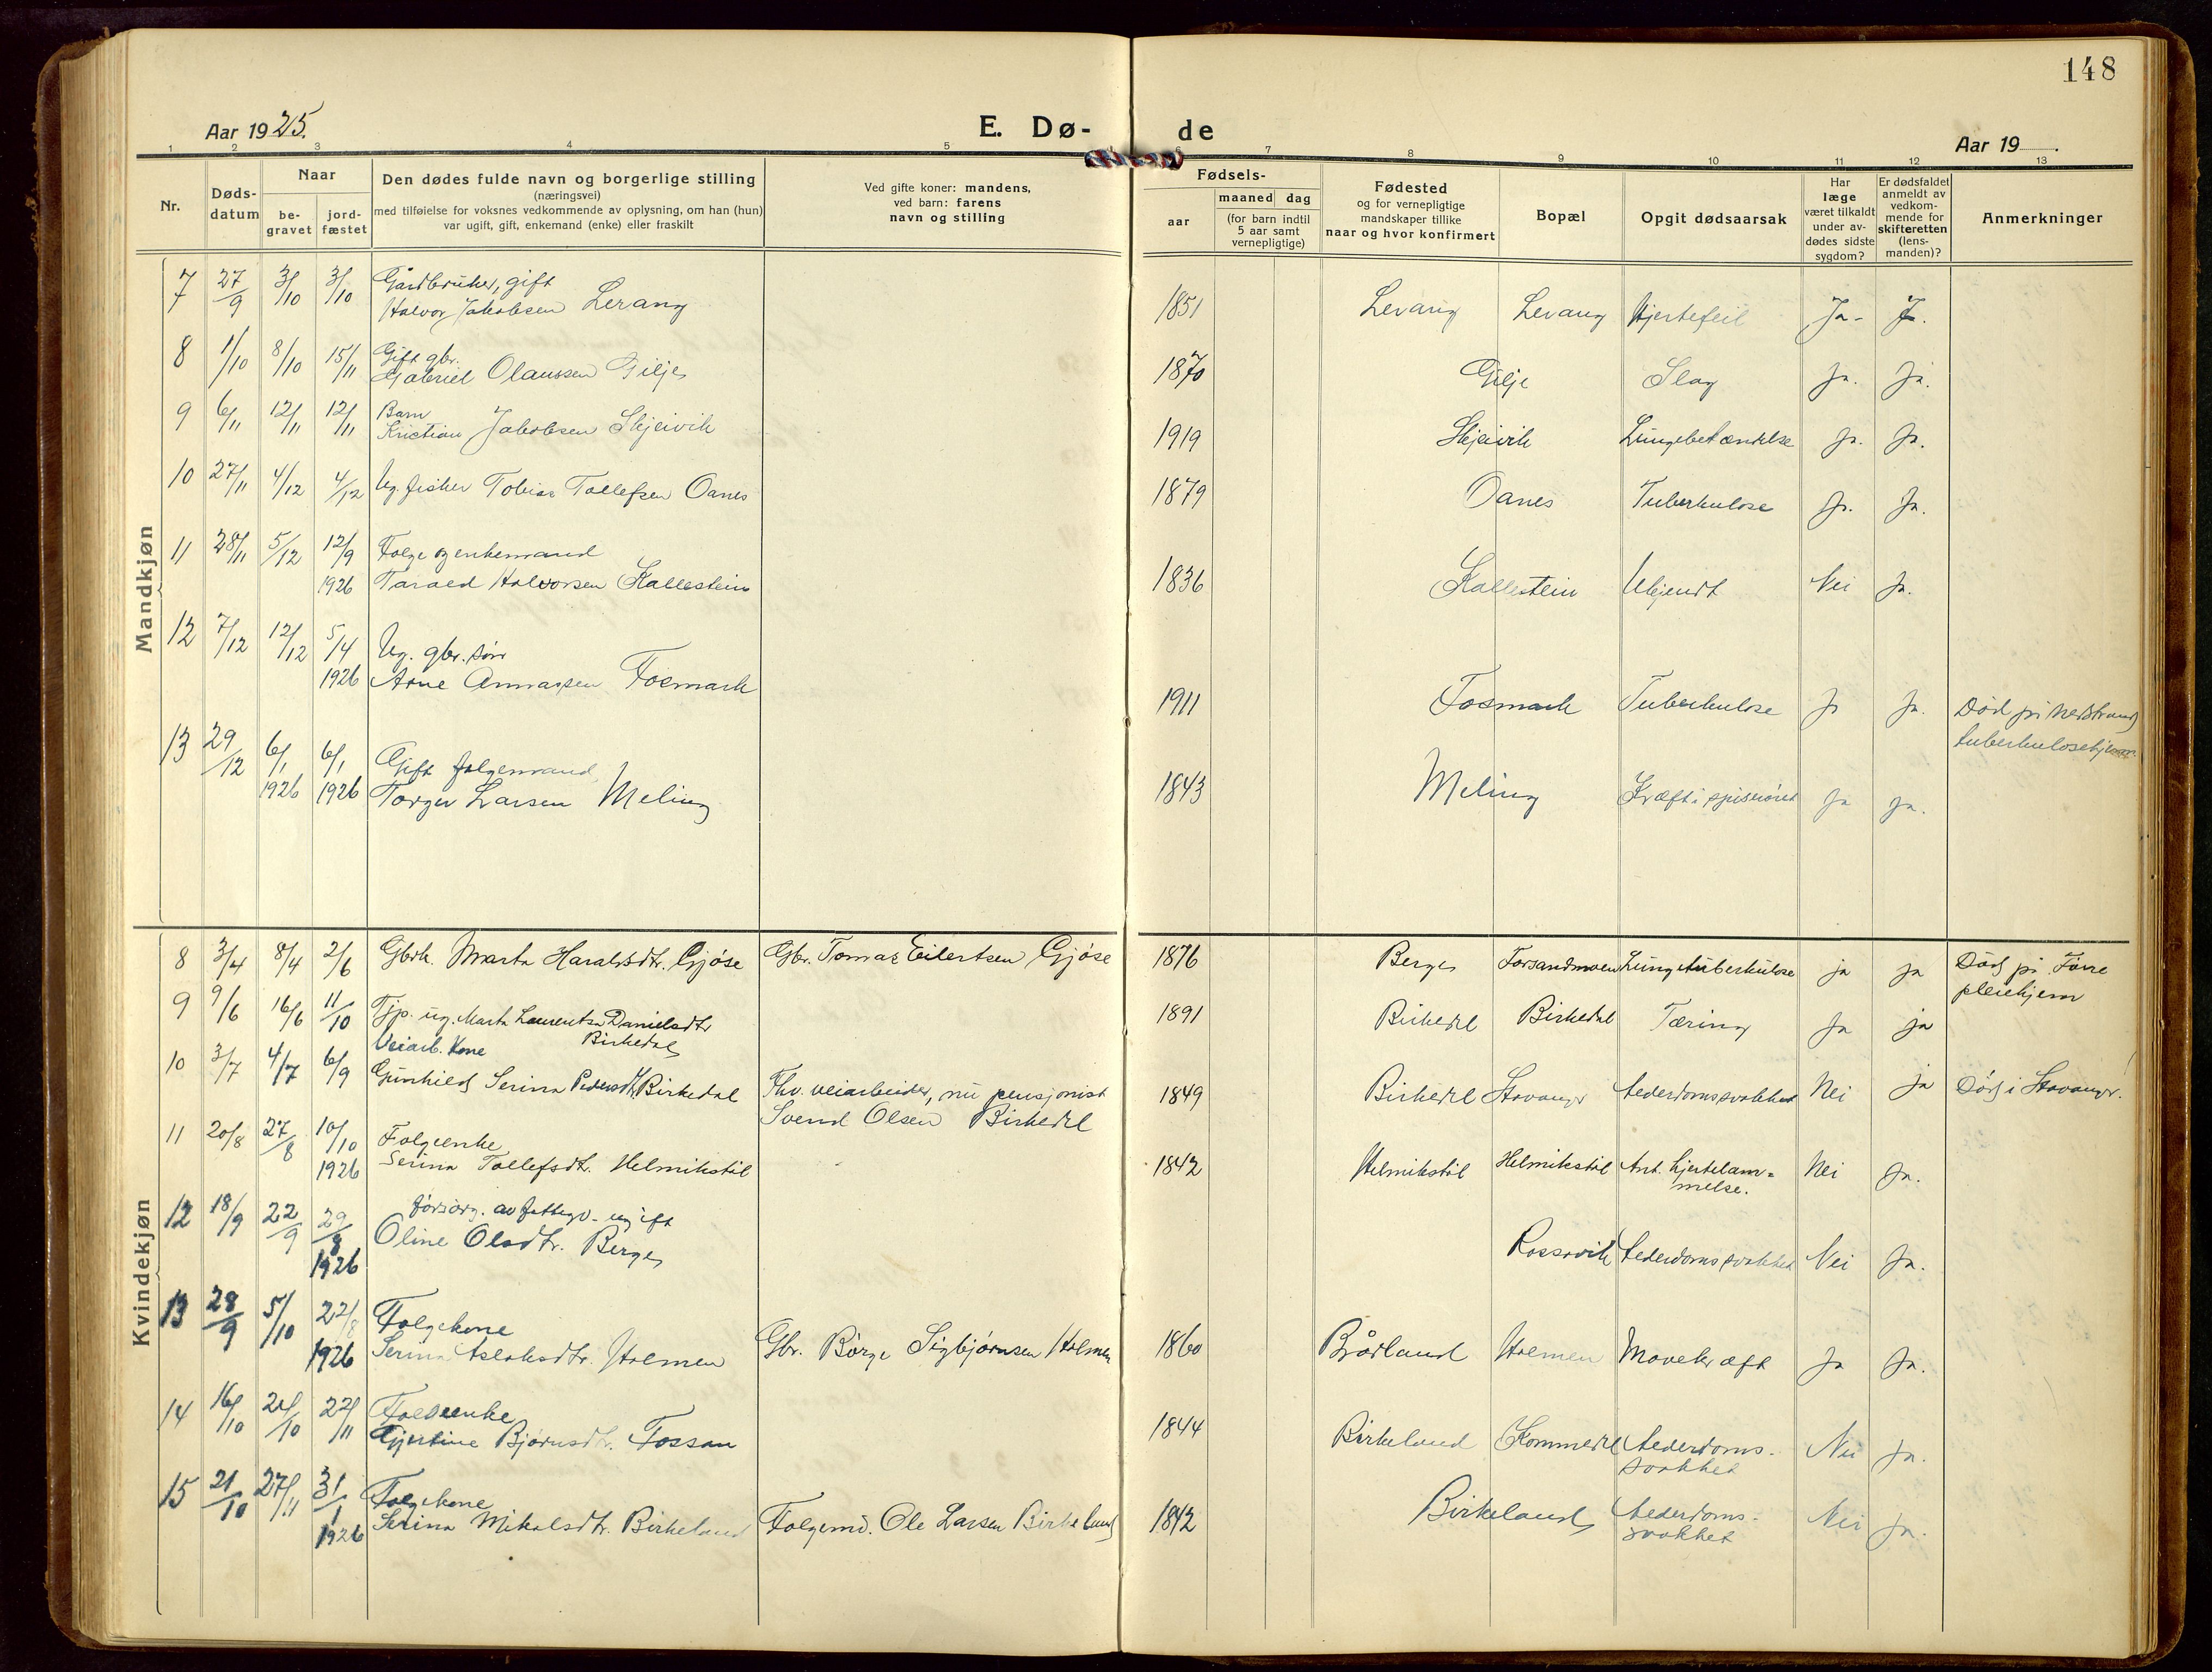 148
Aar 1925.
E. Dø-
de
Aar 19
1 2 3 4 5 6 7 8 9 10 11 12 13
Nr.
Døds-
datum
Naar
be-
gravet
jord-
fæstet
Den dødes fulde navn og borgerlige stilling
(næringsvei)
med tilføielse for voksnes vedkommende av oplysning, om han (hun)
var ugift, gift, enkemand (enke) eller fraskilt
Ved gifte koner: mandens,
ved barn: farens
navn og stilling
Fødsels-
aar
maaned dag
(for barn indtil
5 aar samt
vernepligtige)
Fødested
og for vernepligtige
mandskaper tillike
naar og hvor konfirmert
Bopæl
Opgit dødsaarsak
Har
læge
været tilkaldt
under av-
dødes sidste
sygdom?
Er dødsfaldet
anmeldt av
vedkom-
mende for
skifteretten
(lens-
manden)?
Anmerkninger
Mandkjøn
7 27/9 3/10 3/10 Gårdbruker, gift
Halvor Jakobsen Lerang 1851 Lerang Lerang Hjertefeil Ja- J.
8 1/10 8/10 15/11 Gift gbr.
Gabriel Olaussen Gilje 1870 Gilje Slag Ja. Ja.
9 6/11 12/11 12/11 Barn
Kristian Jakobsen Skjeivik 1919 Skjeivik Lungebetændelse Ja. Ja.
10 27/11 4/12 4/12 Ug. fisker Tobias Tollefsen Oanes 1879 Oanes Tuberkulose Ja. Ja.
11 28/11 5/12 12/9 Folge og enkemand
1926 Tarald Halvorsen Kallestein 1836 Kallestein Ukjendt Nei Ja.
12 7/12 12/12 5/4 Ug. gbr. søn
1926 Arne Fosmark 1911 Fosmark Tuberkulose Ja Ja. Død på Nedstrand
tuberkulosehjem
13 29/12 6/1 6/1 Gift folgemand
1926 1926 Torger Larsen Meling 1843 Meling Kræft i spiserøret Ja Ja.
Kvindekjøn
8 3/4 8/4 2/6 Gbrk. Marta Haraldsdtr. Gjøse Gbr. Tomas Eilertsen Gjøse 1876 Berge Forsandmoen Lungetuberkulose ja ja Død på Førre
pleiehjem
9 9/6 16/6 11/10 Tjp. ug. Marta Laurentsa Danielsdtr
Birkedal 1891 Birkedal Birkedal Tæring Ja ja
10 3/7 4/7 6/9 Veiarb. Kone
Gunhild Serina Pedersdtr. Birkedal Fhv. veiarbeider, nu pensjonist
Svend Olsen Birkedal 1849 Birkedal Stavanger Alderdomssvakhet Nei ja Død i Stavanger.
11 20/8 27/8 10/10 Folgeenke
1926 Serina Tollefsdtr. Helmikstøl 1842 Helmikstøl Helmikstøl Ant. hjertelam-
melse. Nei Ja.
12 18/9 22/9 29/8 forsørg. av fattigv. - ugift
1926 Oline Olsdtr. Berge Rossavik Alderdomssvakhet Nei Ja.
13 28/9 5/10 22/8 Folgekone
1926 Serina Aslaksdtr. Holmen Gbr. Børge Sigbjørnsen Holmen 1860 Brådland Holmen Mavekræft Ja Ja.
14 16/10 21/10 22/11 Folgeenke
Gjertine Bjørnsdtr. Fossan 1844 Birkeland Kommedal Alderdoms-
svakhet Nei Ja.
15 21/10 27/11 31/1 Folgekone
1926 Serina Mikalsdtr. Birkeland Folgemd. Ole Larsen Birkeland 1842 Birkeland Alderdoms-
svakhet Nei Ja.